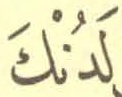 لَدُنْكَ